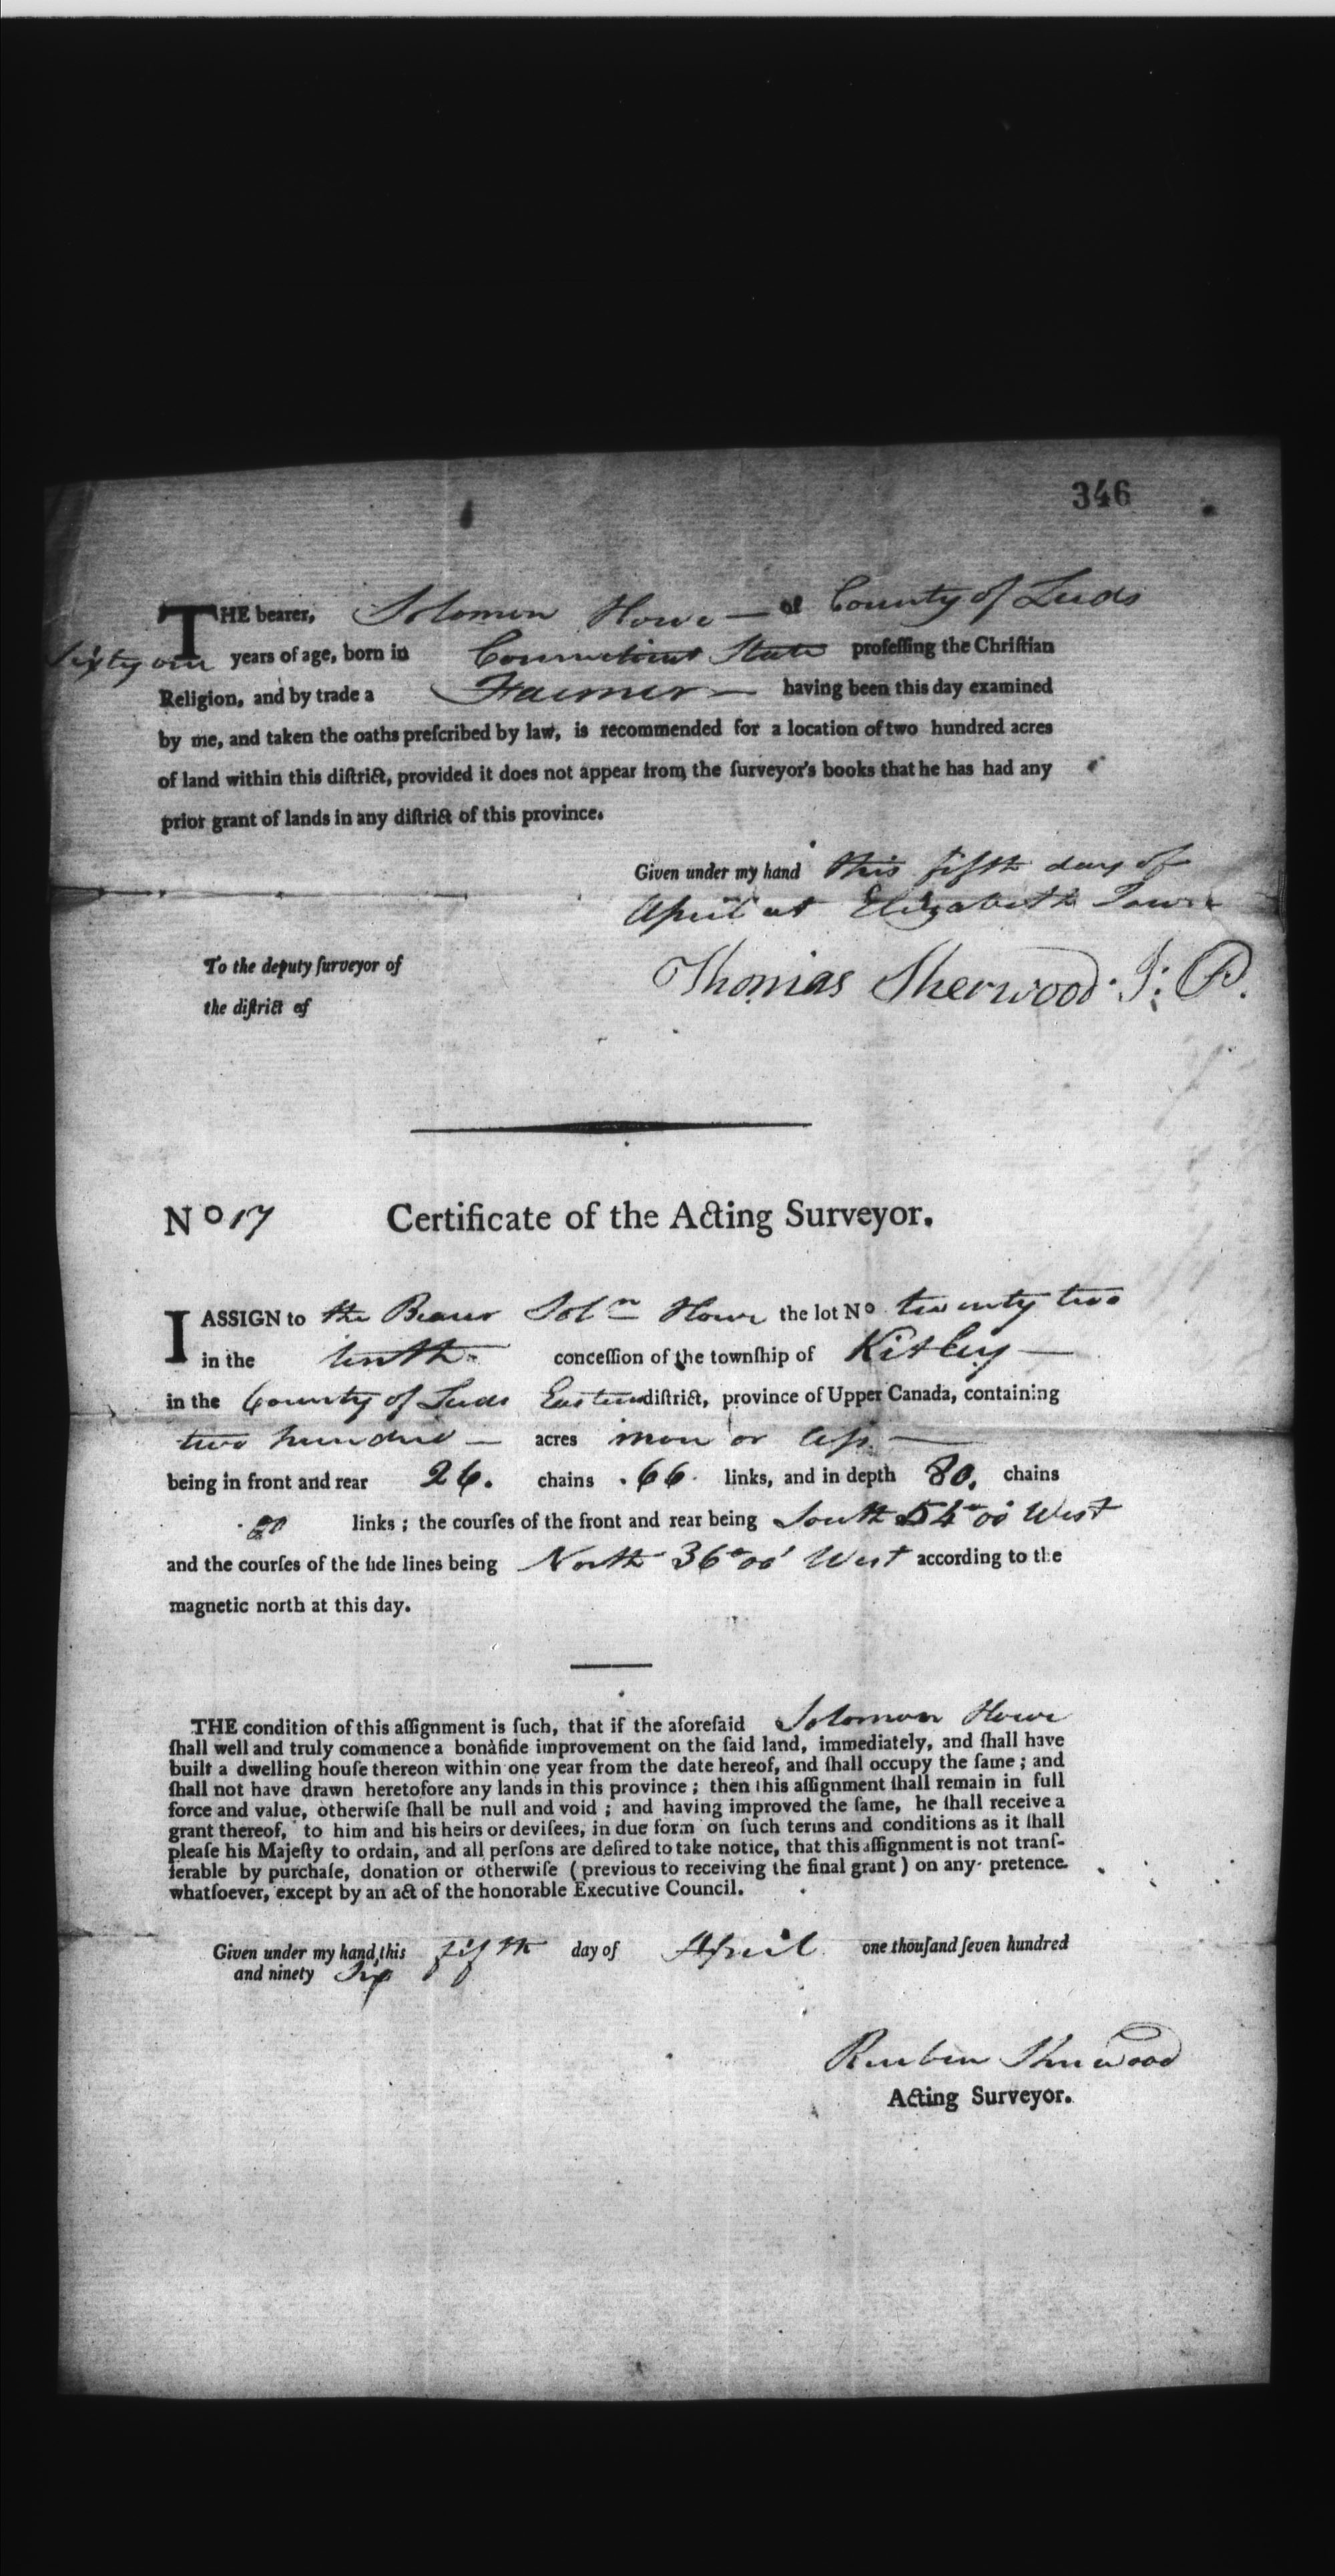 346
THE bearer, Solomon Howe — of County of Leeds
Sixty one years of age, born in Connecticut State profeſſing the Chriſtian
Religion, and by trade a Farmer — having been this day examined
by me, and taken the oaths preſcribed by law, is recommended for a location of two hundred acres
of land within this diſtrict, provided it does not appear from the ſurveyor's books that he has had any
prior grant of lands in any diſtrict of this province.
Given under my hand this fifth day of
April at Elizabeth Town
To the deputy ſurveyor of
Thomas Sherwood. J: P.
the diſtrict of
No 17 Certificate of the Acting Surveyor.
I ASSIGN to the Bearer Soln Howe the lot No twenty two
in the tenth conceſſion of the townſhip of Kitley —
in the County of Leeds Eastern diſtrict, province of Upper Canada, containing
two hundred — acres more or leſs —
being in front and rear 26. chains . 66 . links, and in depth 80. chains
links ; the courſes of the front and rear being South 54° 00' West
and the courſes of the ſide lines being North 36° 00' West according to the
magnetic north at this day.
THE condition of this aſſignment is ſuch, that if the aforeſaid Solomon Howe
ſhall well and truly commence a bonàfide improvement on the ſaid land, immediately, and ſhall have
built a dwelling houſe thereon within one year from the date hereof, and ſhall occupy the ſame ; and
ſhall not have drawn heretofore any lands in this province ; then this aſſignment ſhall remain in full
force and value, otherwiſe ſhall be null and void ; and having improved the ſame, he ſhall receive a
grant thereof, to him and his heirs or deviſees, in due form on ſuch terms and conditions as it ſhall
pleaſe his Majeſty to ordain, and all perſons are deſired to take notice, that this aſſignment is not tranſ-
ferable by purchaſe, donation or otherwiſe ( previous to receiving the final grant ) on any pretence
whatſoever, except by an act of the honorable Executive Council.
Given under my hand this fifth day of April one thouſand ſeven hundred
and ninety Six
Reuben Sherwood
Acting Surveyor.